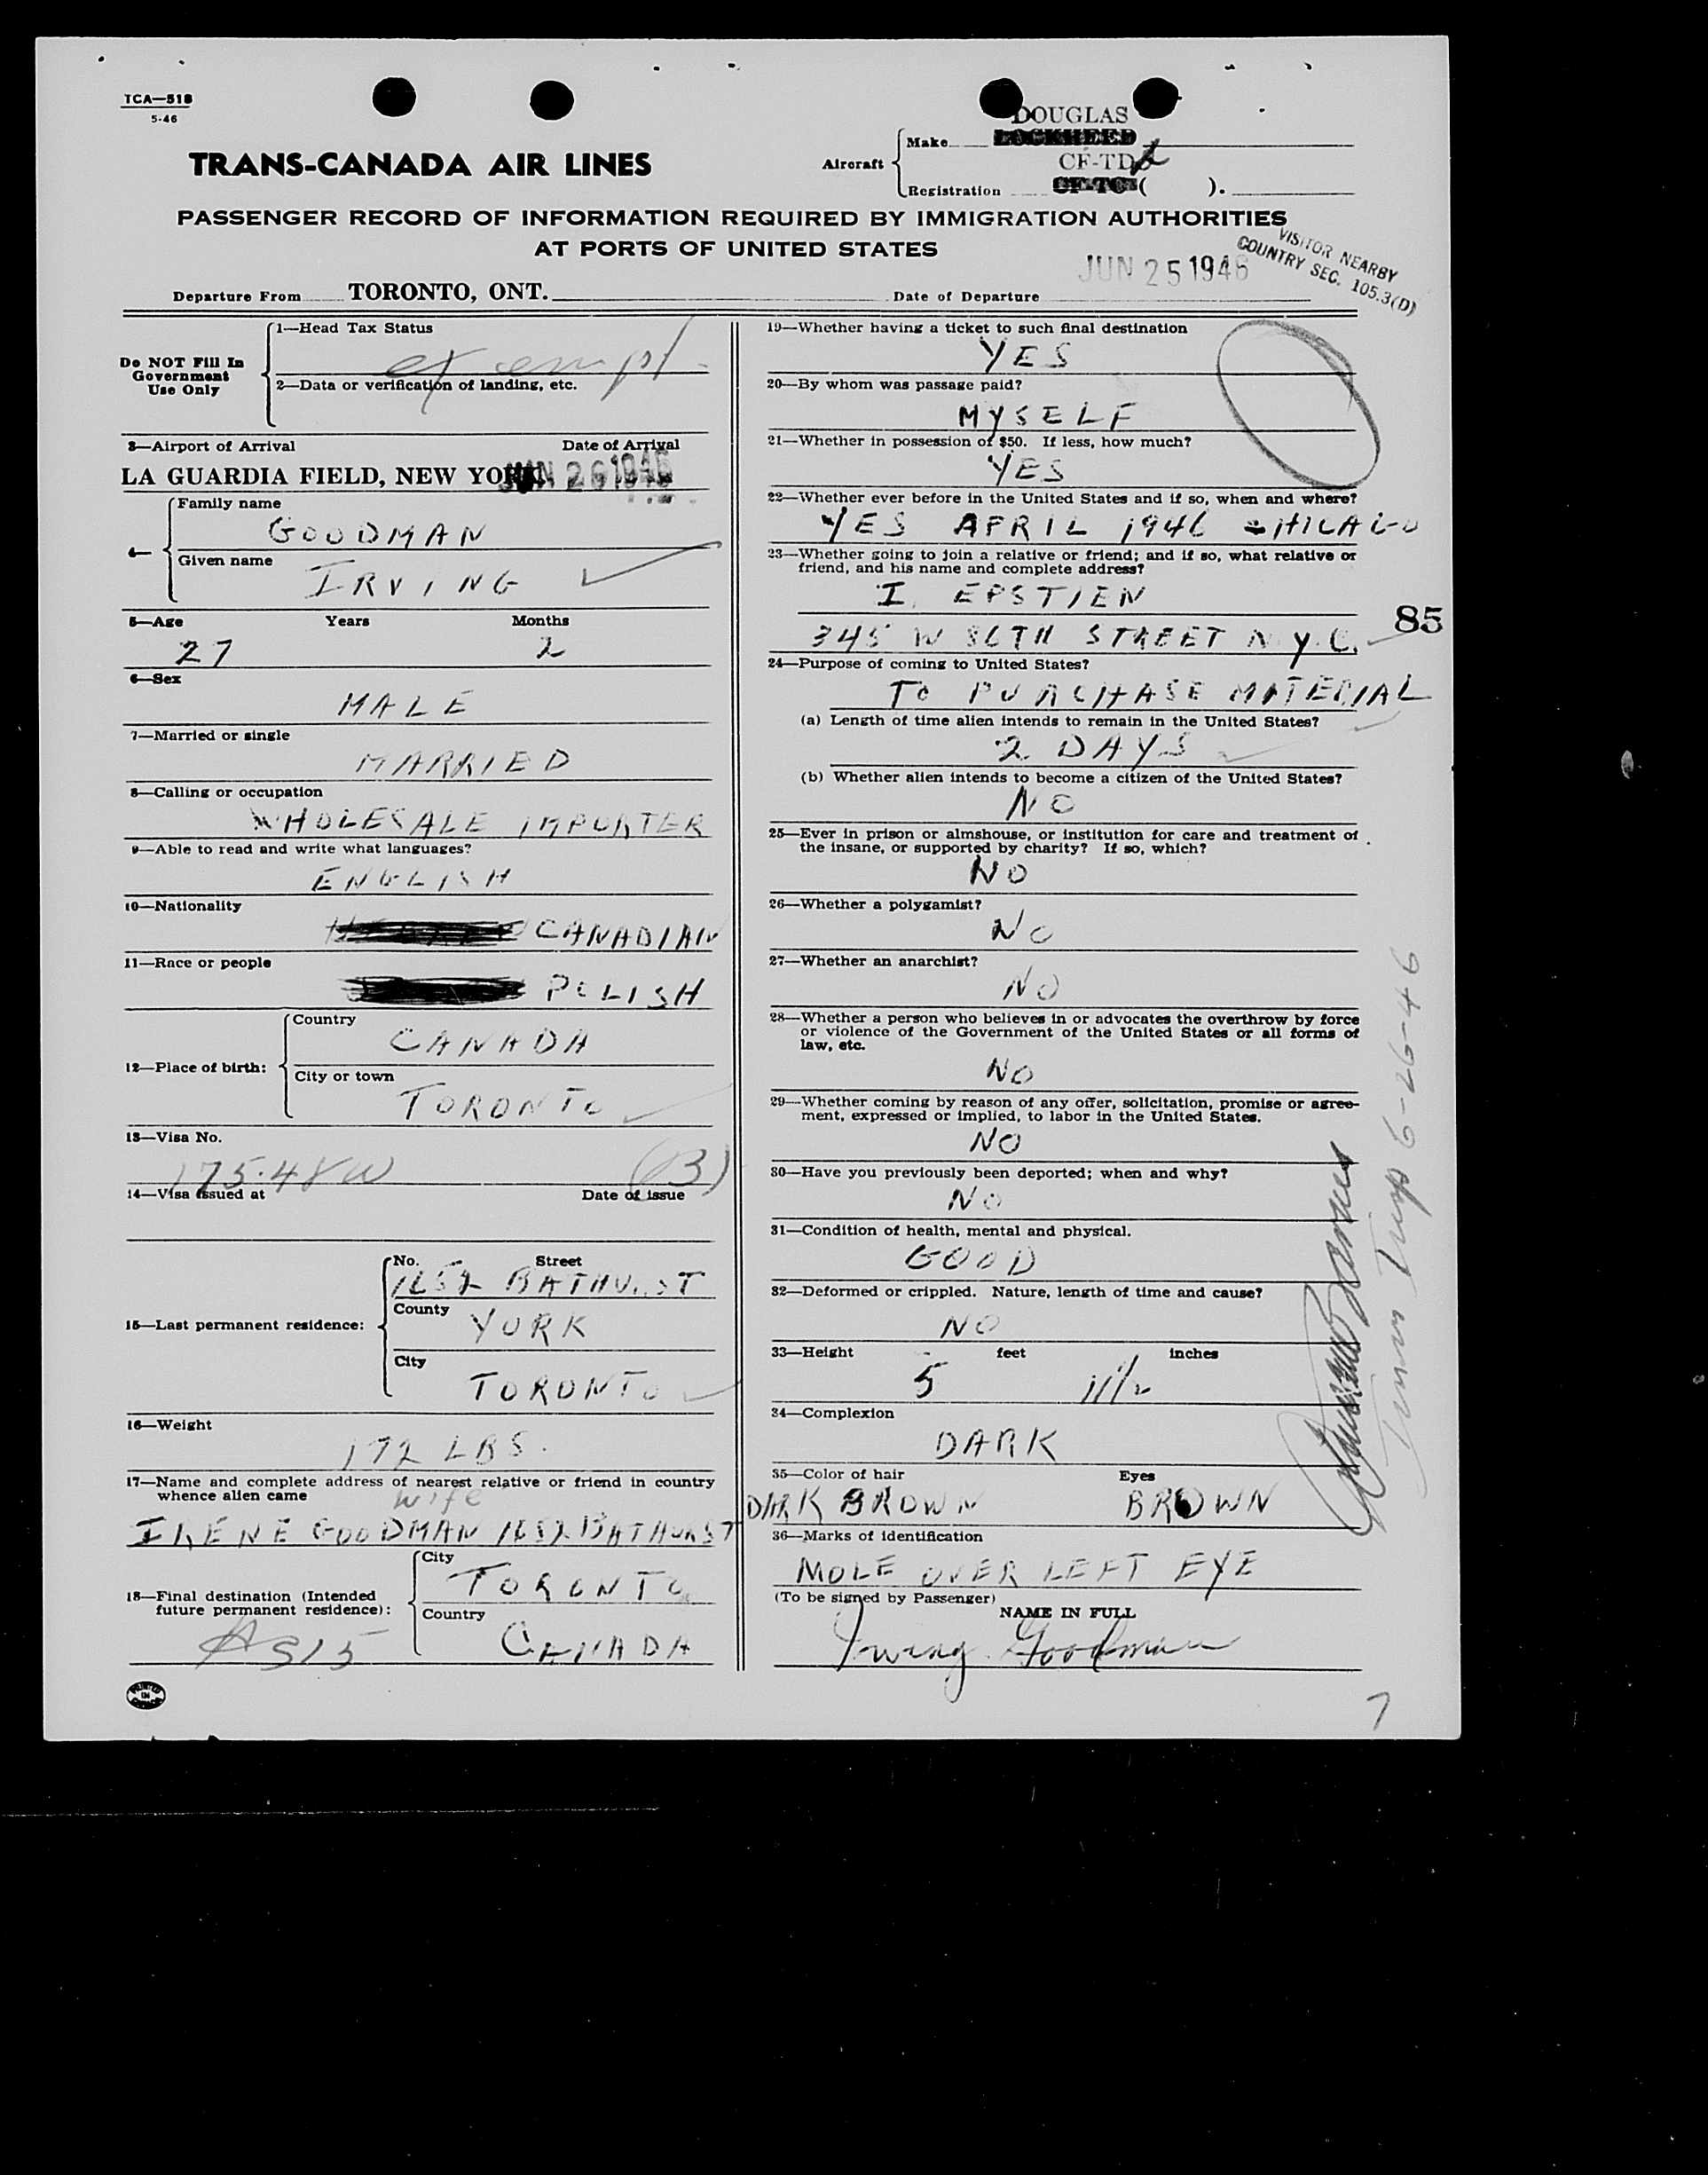 TCA—518
5-46
DOUGLAS
TRANS-CANADA AIR LINES
Aircraft
Make LOCKHEED
CF-TD
Registration ( ).
PASSENGER RECORD OF INFORMATION REQUIRED BY IMMIGRATION AUTHORITIES
AT PORTS OF UNITED STATES
VISITOR NEARBY
COUNTRY SEC. 105.3(D)
Departure From TORONTO, ONT.
Date of Departure JUN 25 1946
Do NOT Fill In
Government
Use Only
1—Head Tax Status
exempt
2—Data or verification of landing, etc.
3—Airport of Arrival Date of Arrival
LA GUARDIA FIELD, NEW YORK JUN 26 1946
4—
Family name
GOODMAN
Given name
IRVING
5—Age Years Months
27 2
6—Sex
MALE
7—Married or single
MARRIED
8—Calling or occupation
WHOLESALE IMPORTER
9—Able to read and write what languages?
ENGLISH
10—Nationality
CANADIAN
11—Race or people
POLISH
12—Place of birth:
Country
CANADA
City or town
TORONTO
13—Visa No.
175.48W (B)
14—Visa issued at Date of issue
15—Last permanent residence:
No. Street
1652 BATHURST
County
YORK
City
TORONTO
16—Weight
172 LBS.
17—Name and complete address of nearest relative or friend in country
whence alien came
wife
IRENE GOODMAN 1652 BATHURST
18—Final destination (Intended
future permanent residence):
City
TORONTO
Country
CANADA
PRINTED
IN
CANADA
19—Whether having a ticket to such final destination
YES
20—By whom was passage paid?
MYSELF
21—Whether in possession of $50. If less, how much?
YES
22—Whether ever before in the United States and if so, when and where?
YES APRIL 1946 CHICAGO
23—Whether going to join a relative or friend; and if so, what relative or
friend, and his name and complete address?
I. EPSTIEN
345 W 86TH STREET N.Y.C.
85
24—Purpose of coming to United States?
TO PURCHASE MATERIAL
(a) Length of time alien intends to remain in the United States?
2 DAYS
(b) Whether alien intends to become a citizen of the United States?
NO
25—Ever in prison or almshouse, or institution for care and treatment of
the insane, or supported by charity? If so, which?
NO
26—Whether a polygamist?
NO
27—Whether an anarchist?
NO
28—Whether a person who believes in or advocates the overthrow by force
or violence of the Government of the United States or all forms of
law, etc.
NO
29—Whether coming by reason of any offer, solicitation, promise or agree-
ment, expressed or implied, to labor in the United States.
NO
30—Have you previously been deported; when and why?
NO
31—Condition of health, mental and physical.
GOOD
32—Deformed or crippled. Nature, length of time and cause?
NO
33—Height feet inches
5 11/2
34—Complexion
DARK
35—Color of hair Eyes
DARK BROWN BROWN
36—Marks of identification
MOLE OVER LEFT EYE
(To be signed by Passenger)
NAME IN FULL
Irving Goodman
7
6-26-46